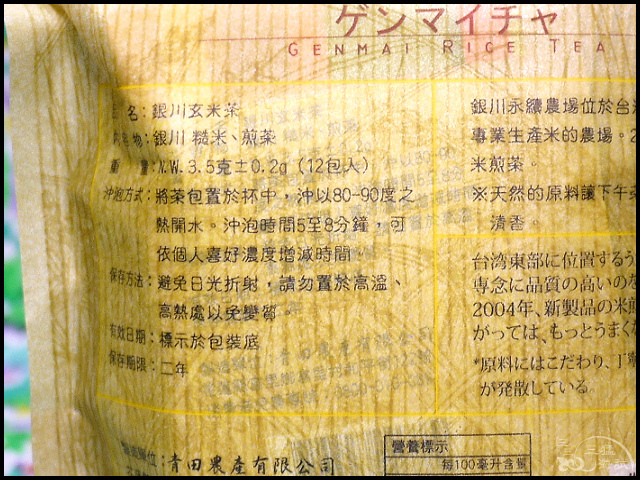 ゲンマイチャ
GENMAI RICE TEA
品 名：銀川玄米茶
內容物：銀川 糙米、煎茶
重 量：N.W. 3.5克±0.2g（12包入）
沖泡方式：將茶包置於杯中，沖以80-90度之
熱開水。沖泡時間5至8分鐘，可
依個人喜好濃度增減時間。
保存方法：避免日光折射，請勿置於高溫、
高熱處以免變質。
有效日期：標示於包裝底
保存期限：二年
青田農產有限公司
銀川永續農場位於台
專業生產米的農場。2
米煎茶。
※天然的原料讓下午
清香。
台湾東部に位置する
専念に品質の高いの
2004年、新製品の米
がっては、もっとうまく
*原料にはこだわり、丁
が発散している。
營養標示
每100毫升含量